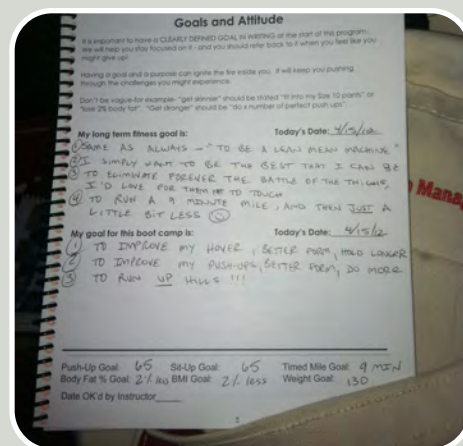 Goals and Attitude
It is important to have a CLEARLY DEFINED GOAL IN WRITING at the start of this program.
We will help you stay focused on it - and you should refer back to it when you feel like you
might give up!
Having a goal and a purpose can ignite the fire inside you. It will keep you pushing
through the challenges you might experience.
Don't be vague-for example- "get skinnier" should be stated "fit into my size 10 pants" or
"lose 2% body fat". "Get stronger" should be "do x number of perfect push ups".
My long term fitness goal is: Today's Date: 4/15/12
① SAME AS ALWAYS - "TO BE A LEAN MEAN MACHINE"
② I SIMPLY WANT TO BE THE BEST THAT I CAN BE
③ TO ELIMINATE FOREVER THE BATTLE OF THE THIGHS,
I'D LOVE FOR THEM TO TOUCH
④ TO RUN A 9 MINUTE MILE, AND THEN JUST A
LITTLE BIT LESS ☺
My goal for this boot camp is: Today's Date: 4/15/12
① TO IMPROVE MY HOVER, BETTER FORM, HOLD LONGER
② TO IMPROVE MY PUSH-UPS, BETTER FORM, DO MORE
③ TO RUN UP HILLS !!!
Push-Up Goal: 65 Sit-Up Goal: 65 Timed Mile Goal: 9 MIN
Body Fat % Goal: 2% less BMI Goal: 2% less Weight Goal: 130
Date OK'd by Instructor
2